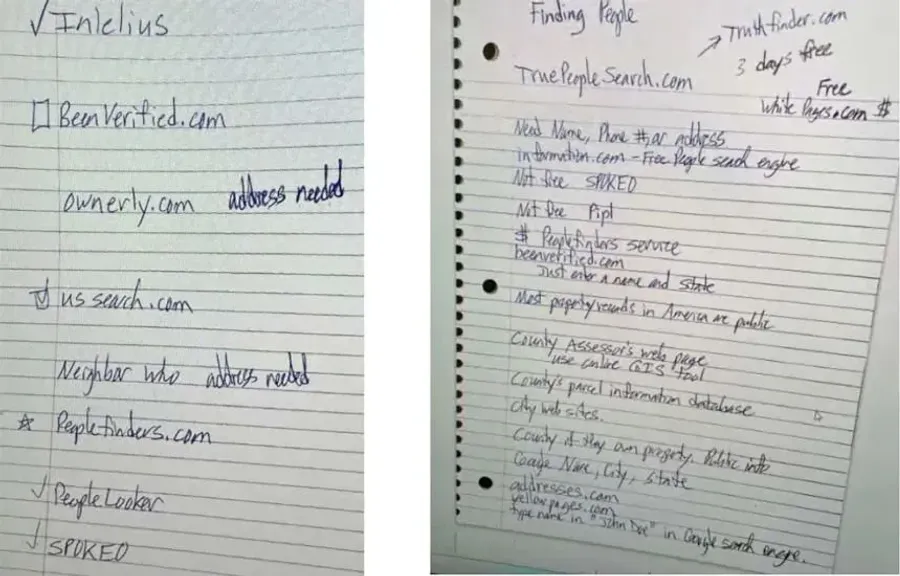 ✓ Intelius
☐ BeenVerified.com
ownerly.com address needed
☑ us search.com
Neighbor who address needed
☆ Peoplefinders.com
✓ PeopleLooker
✓ SPOKEO
Finding People
↗ Truthfinder.com
3 days free
TruePeopleSearch.com
Free
White Pages.com $
Need Name, Phone #, or address
information.com - Free People search engine
Not free SPOKEO
Not free Pipl
$ Peoplefinders service
beenverified.com
Just enter a name and state
Most property records in America are public
County Assessor's web page
use online GIS tool
County's parcel information database
City web sites.
County if they own property. Public info
Google Name, City, State
addresses.com
yellowpages.com
type name in "John Doe" in Google search engine.